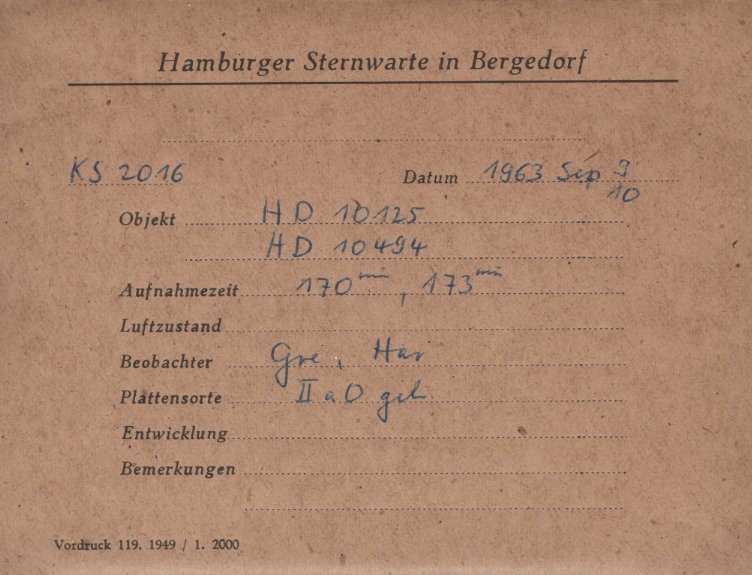 Hamburger Sternwarte in Bergedorf
KS 2016 Datum 1963 Sep 9
10
Objekt HD 10125
HD 10494
Aufnahmezeit 170 min, 173 min
Luftzustand
Beobachter Gre, Har
Plattensorte II a O
Entwicklung
Bemerkungen
Vordruck 119. 1949 / 1. 2000